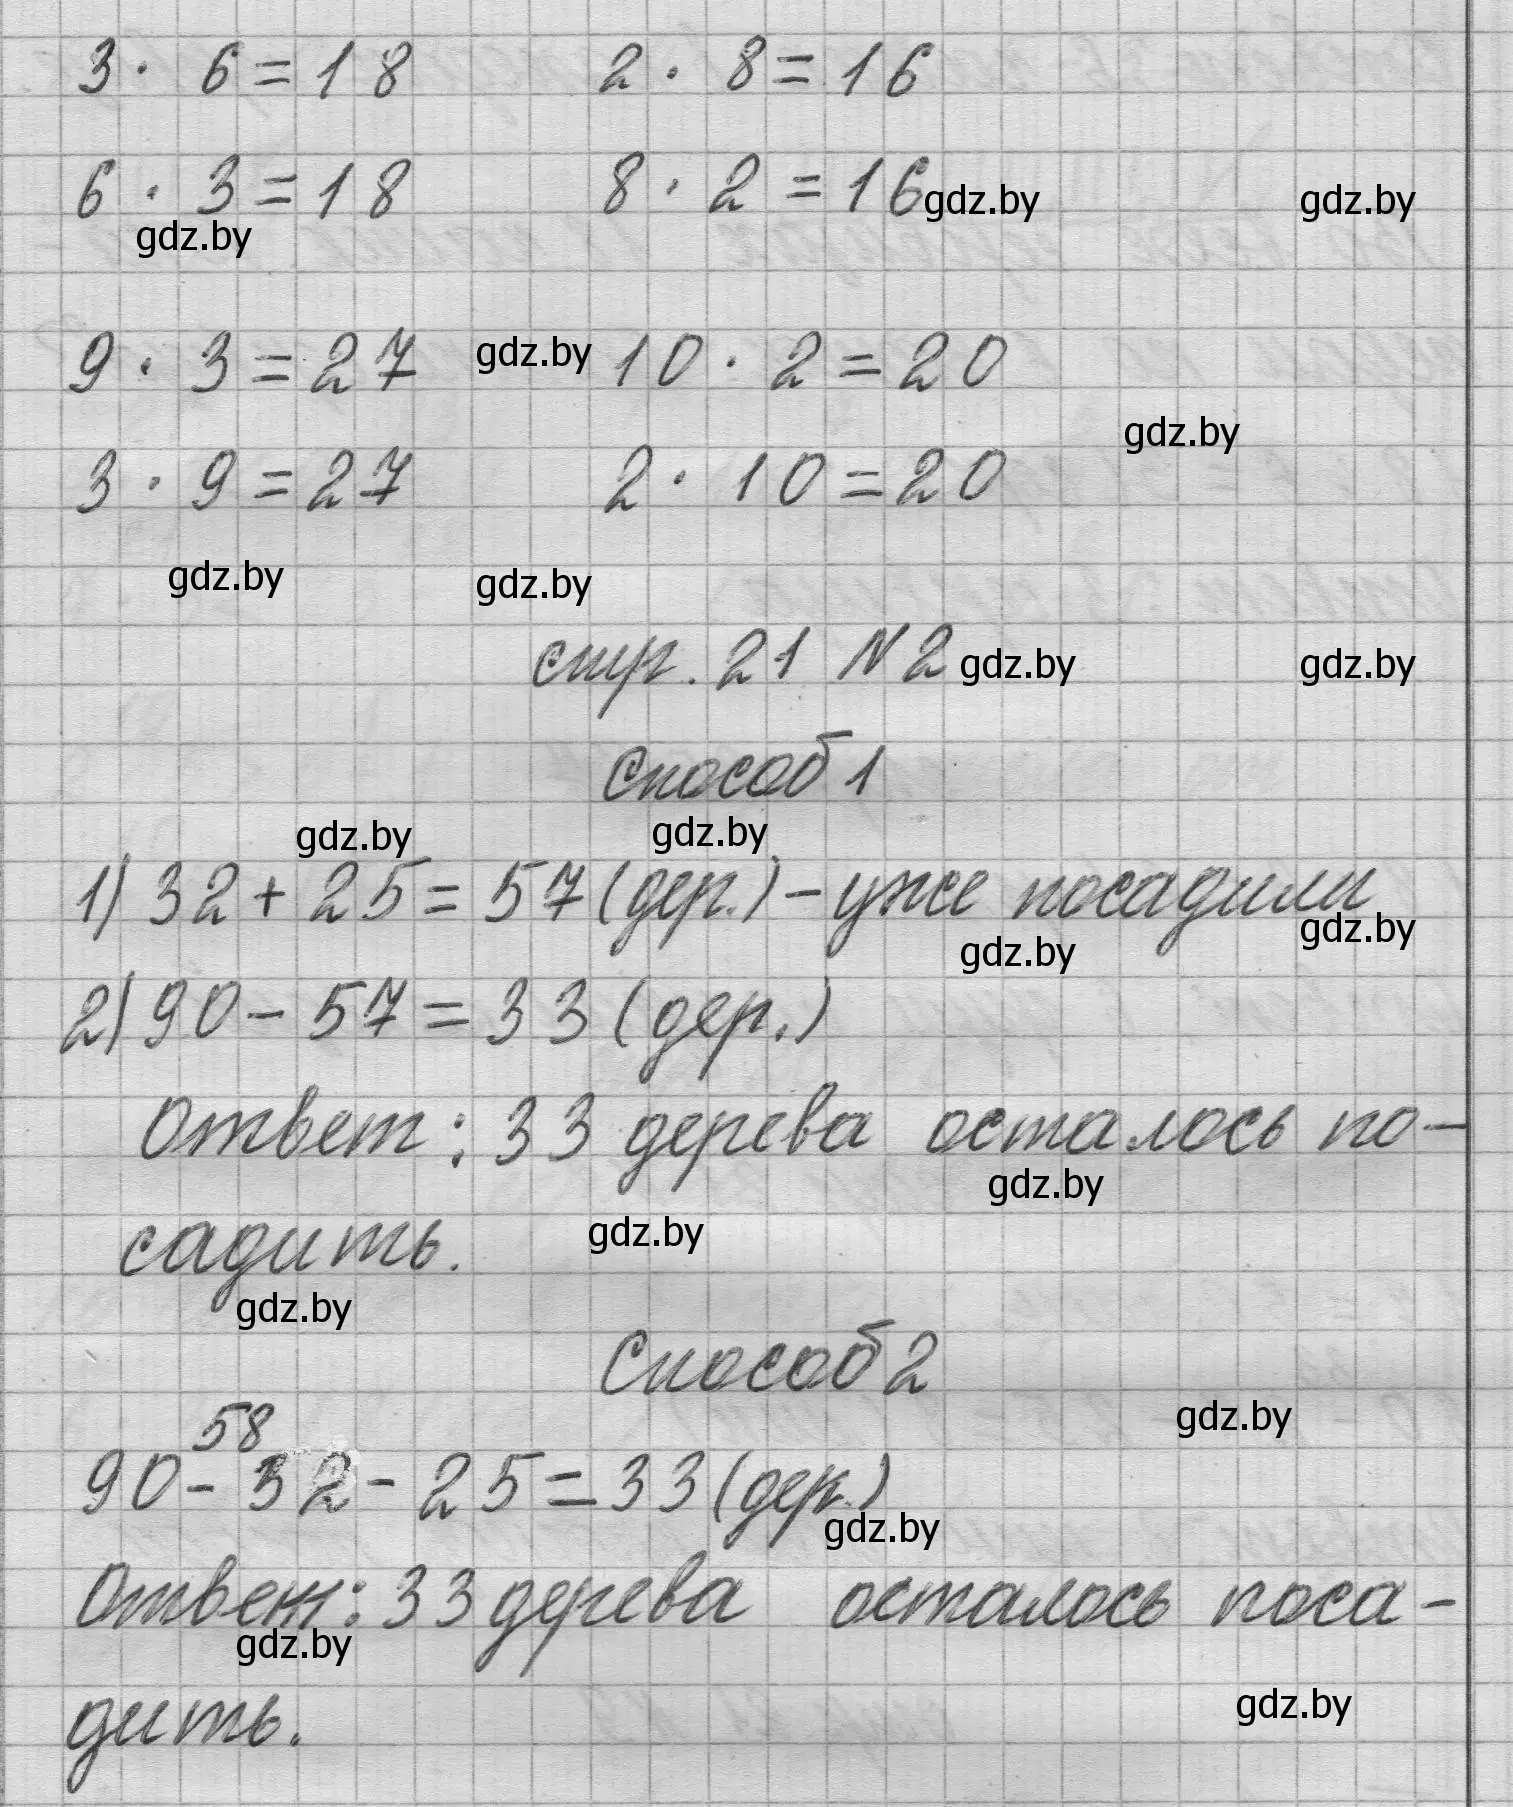 3 · 6 = 18 2 · 8 = 16
6 · 3 = 18 8 · 2 = 16 gdz.by gdz.by
gdz.by
9 · 3 = 27 gdz.by 10 · 2 = 20
gdz.by
3 · 9 = 27 2 · 10 = 20
gdz.by gdz.by
стр. 21 N 2 gdz.by gdz.by
Способ 1
gdz.by gdz.by
1) 32 + 25 = 57 (дер.) - уже посадили
gdz.by gdz.by
2) 90 - 57 = 33 (дер.)
Ответ: 33 дерева осталось по-
gdz.by
садить. gdz.by
gdz.by
Способ 2
gdz.by
58
90 - 32 - 25 = 33 (дер.)
gdz.by
Ответ: 33 дерева осталось поса-
gdz.by
дить. gdz.by